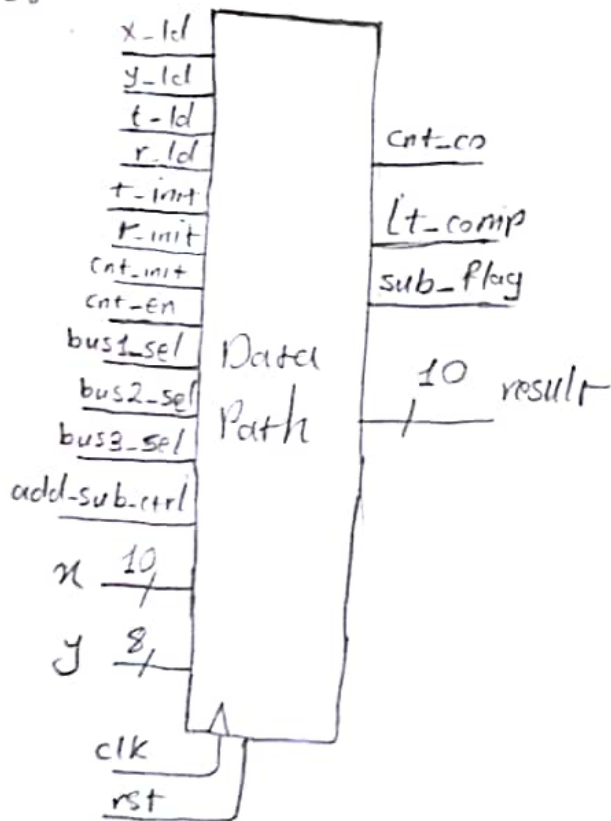 x_ld
y_ld
t_ld
r_ld
t_init
r_init
cnt_init
cnt_en
bus1_sel
bus2_sel
bus3_sel
add_sub_ctrl
x 10
y 8
clk
rst
Data
Path
cnt_co
lt_comp
sub_flag
10 result